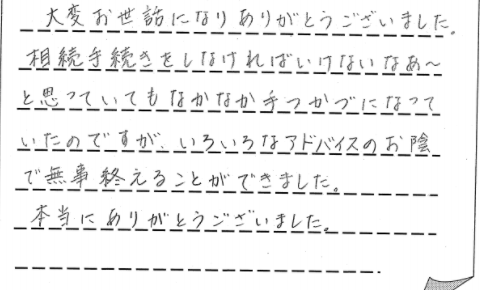 大変お世話になりありがとうございました。
相続手続きをしなければいけないなあ〜
と思っていてもなかなか手つかづになって
いたのですが、いろいろなアドバイスのお陰
で無事終えることができました。
本当にありがとうございました。